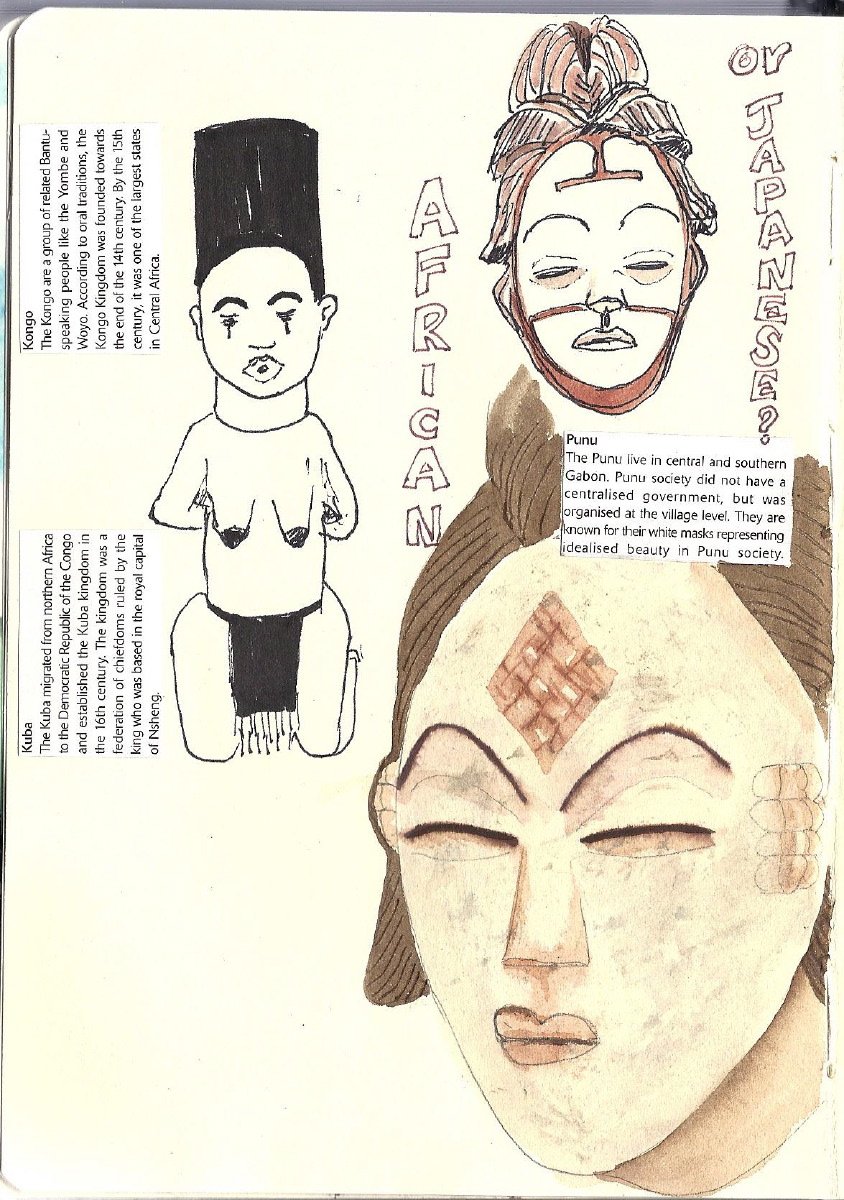 Kongo
The Kongo are a group of related Bantu-
speaking people like the Yombe and
Woyo. According to oral traditions, the
Kongo Kingdom was founded towards
the end of the 14th century. By the 15th
century, it was one of the largest states
in Central Africa.
Kuba
The Kuba migrated from northern Africa
to the Democratic Republic of the Congo
and established the Kuba kingdom in
the 16th century. The kingdom was a
federation of chiefdoms ruled by the
king who was based in the royal capital
of Nsheng.
AFRICAN
or JAPANESE?
Punu
The Punu live in central and southern
Gabon. Punu society did not have a
centralised government, but was
organised at the village level. They are
known for their white masks representing
idealised beauty in Punu society.